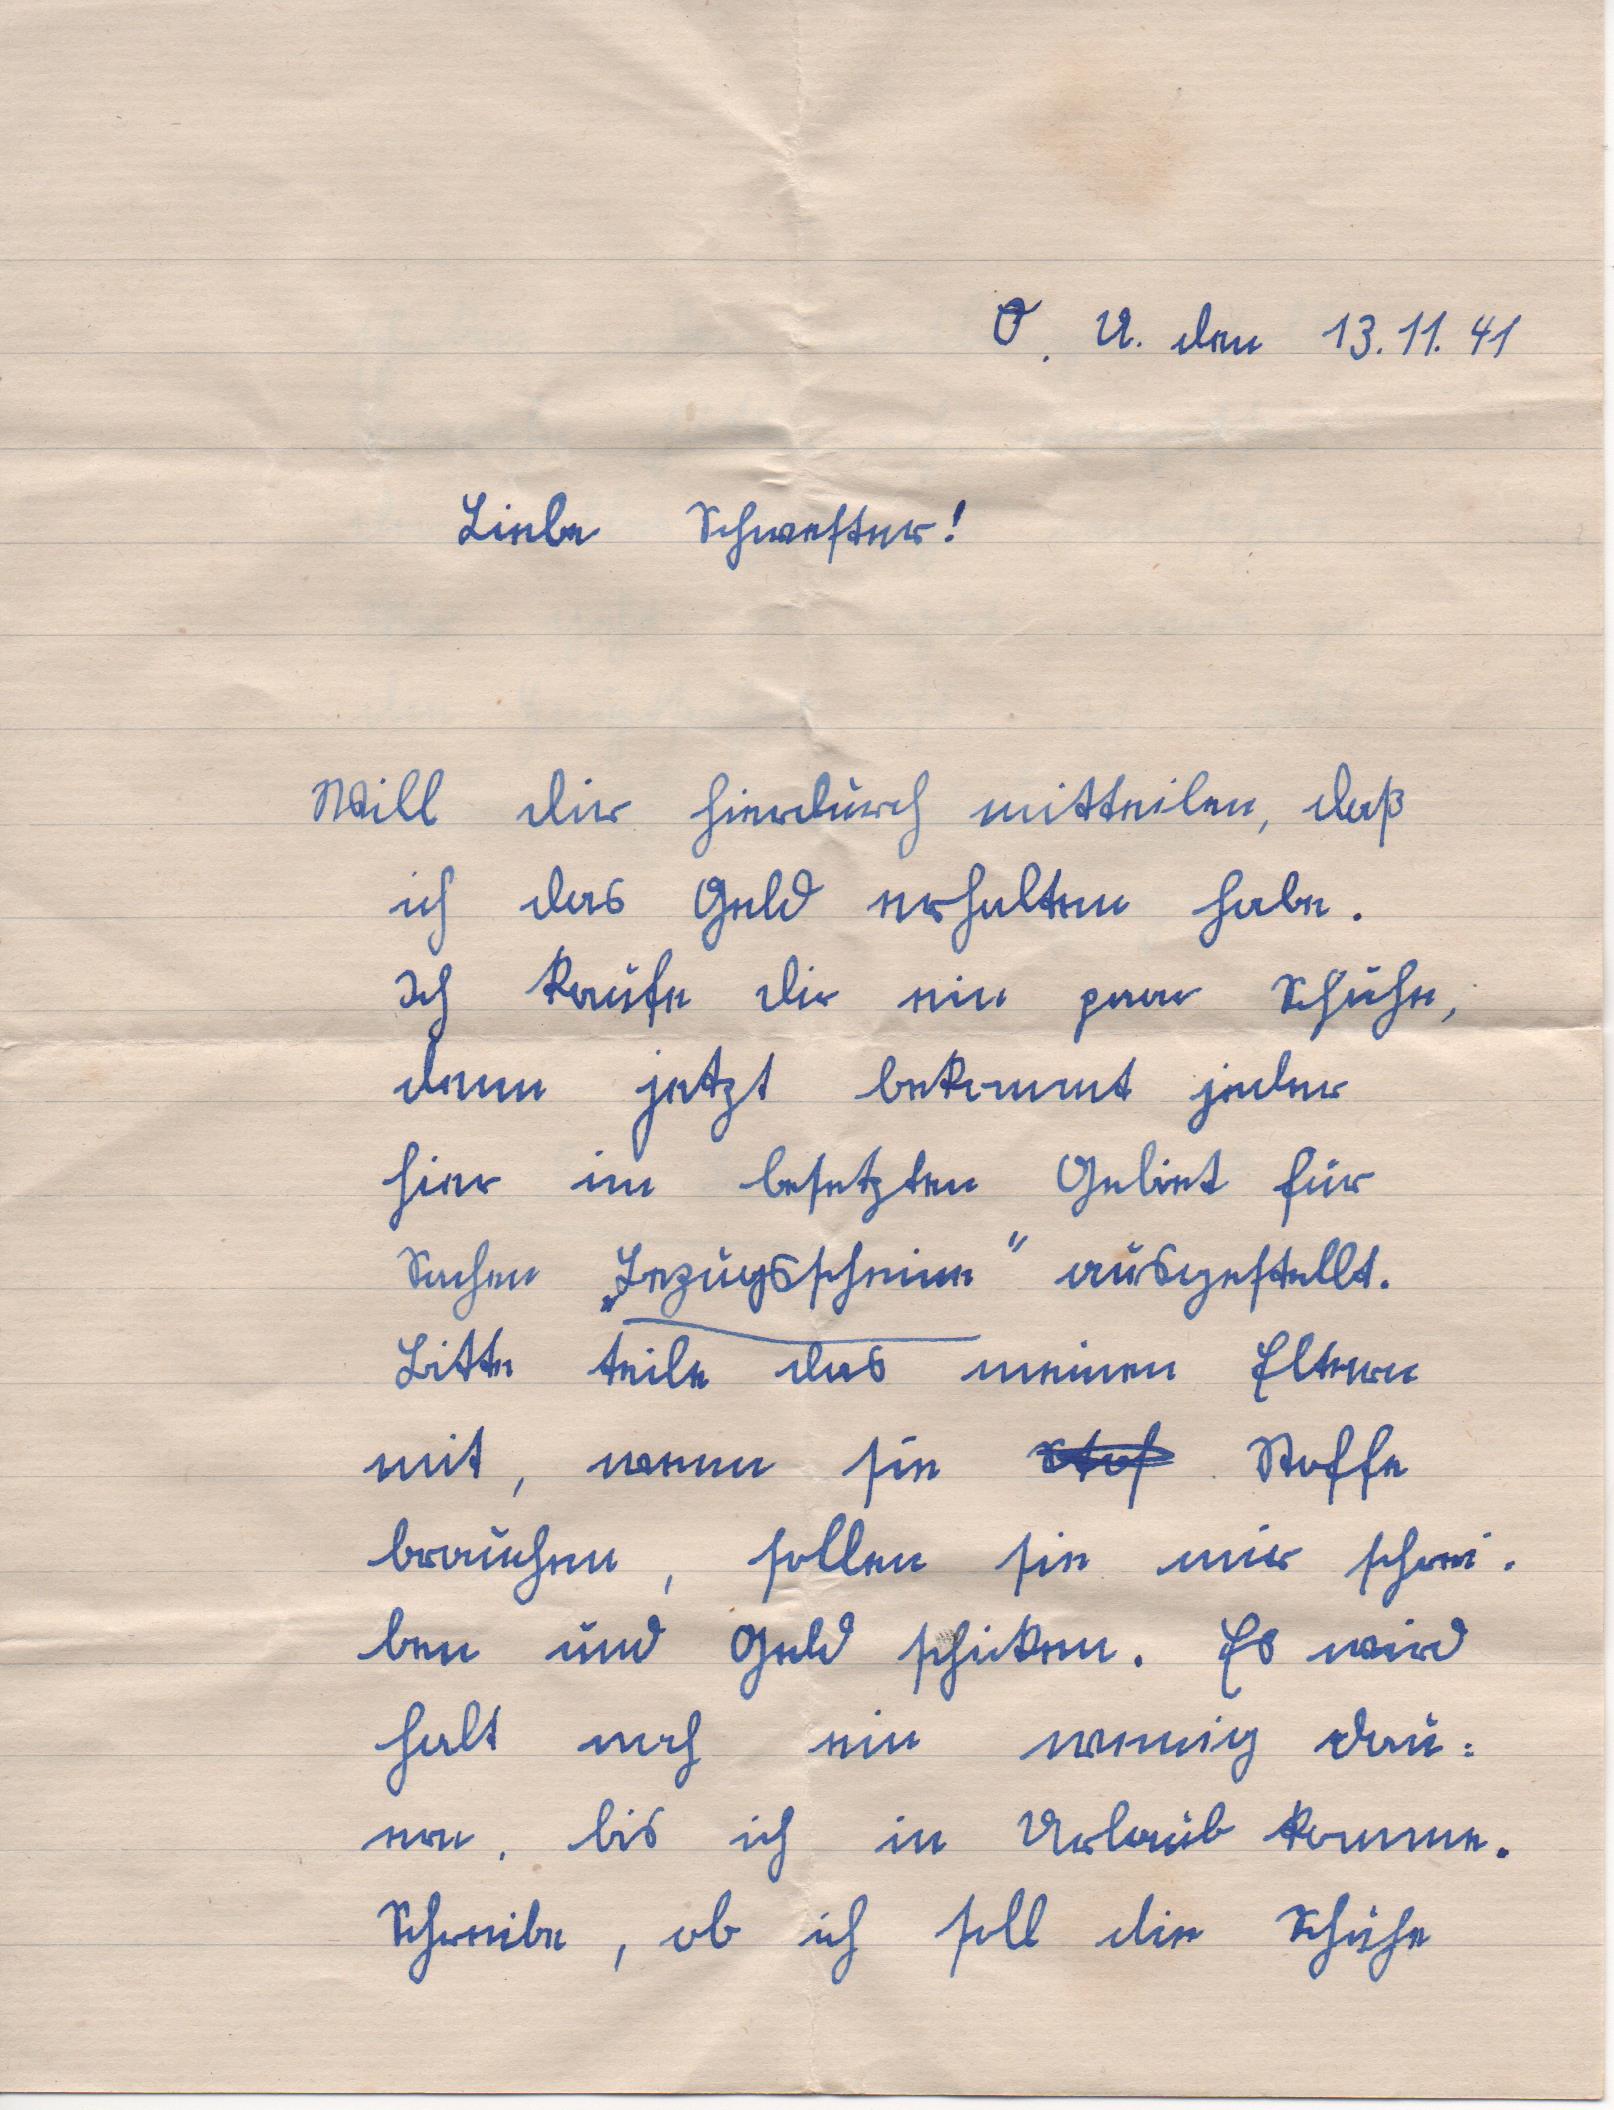 O. U. den 13.11.41
Liebe Schwester!
Will dir hierdurch mitteilen, daß
ich das Geld erhalten habe.
Ich kaufe dir ein paar Schuhe,
denn jetzt bekommt jeder
hier im besetzten Gebiet für
Sachen „Bezugsscheine" ausgestellt.
Bitte teile das meinen Eltern
mit, wenn sie Stof Stoffe
brauchen, sollen sie mir schrei.
ben und Geld schicken. Es wird
halt noch ein wennig dau=
ern, bis ich in Urlaub komme.
Schreibe, ob ich soll die Schuhe